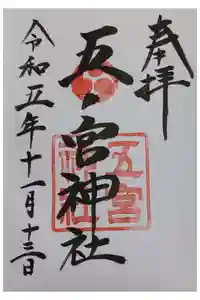 奉拝
五ノ宮神社
五宮神社
令和五年十一月十三日